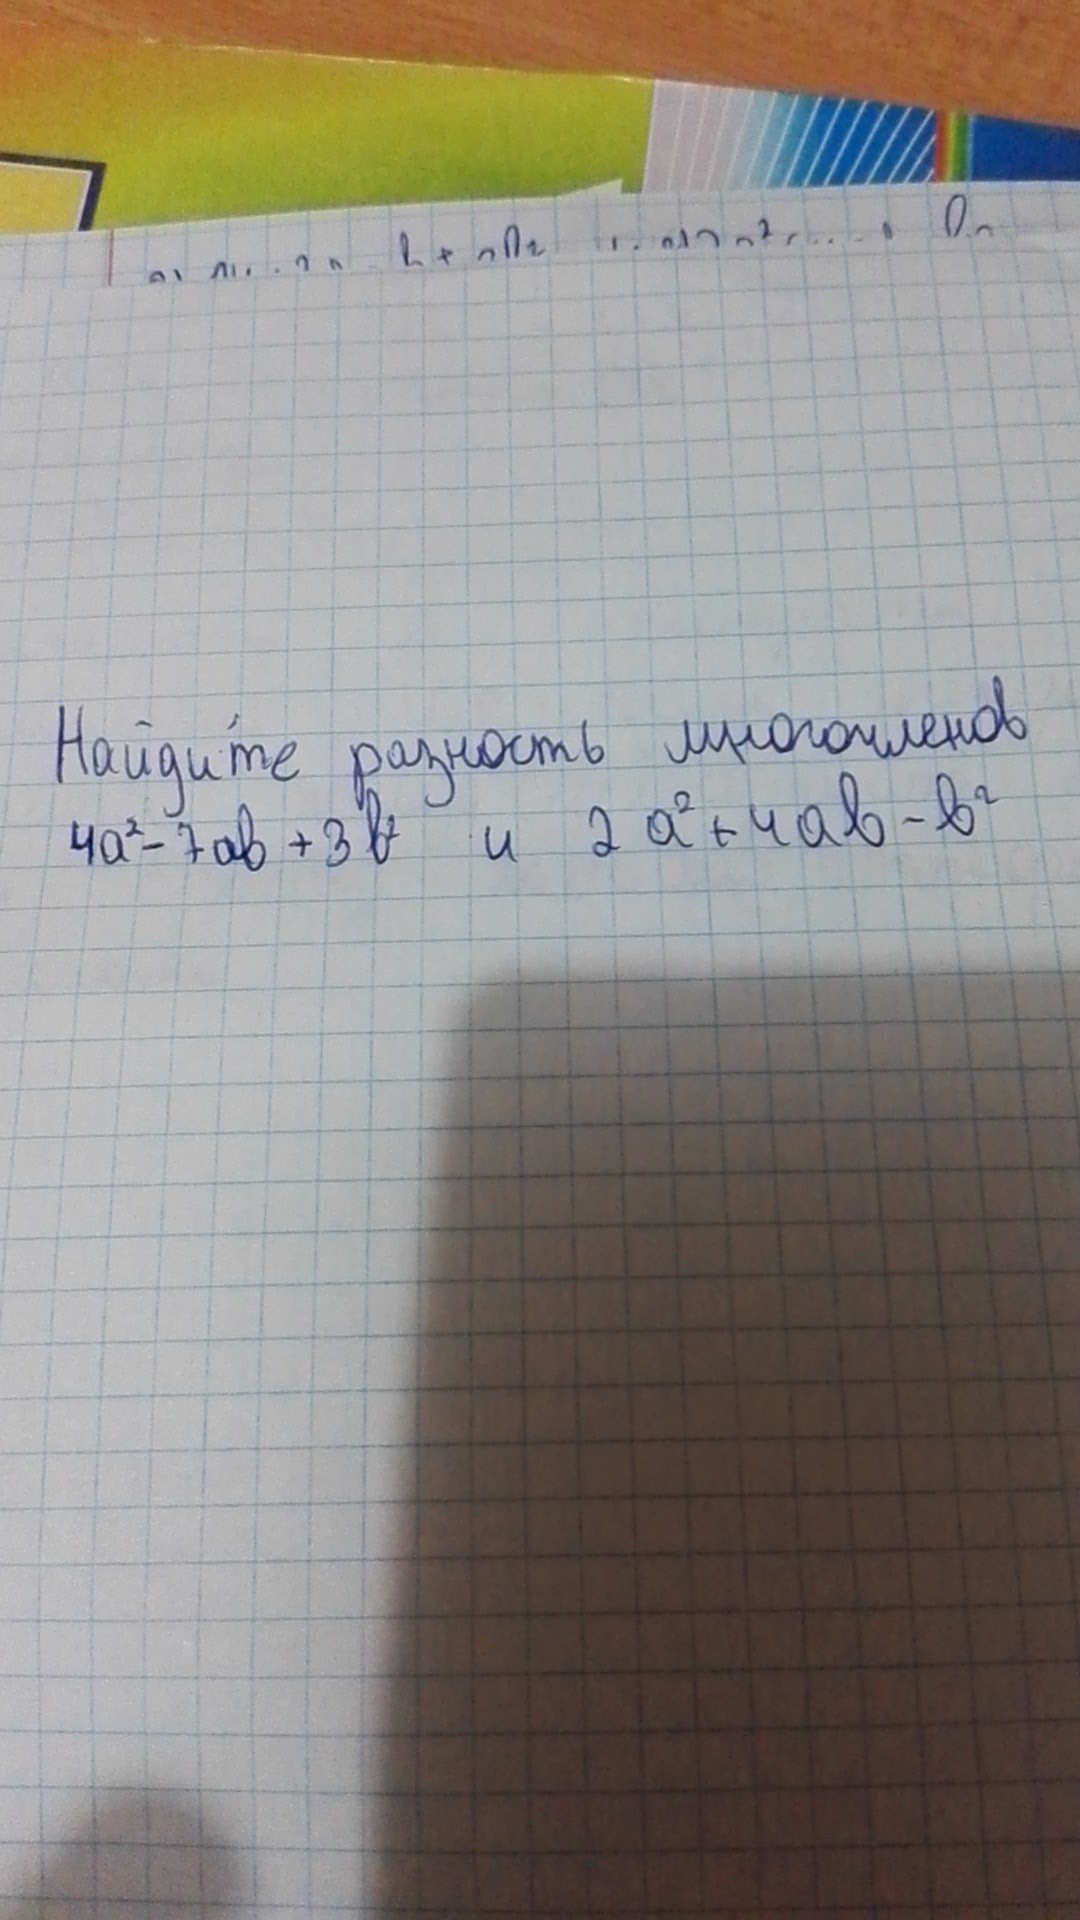 Найдите разность многочленов
4a²-7ab+3b² и 2a²+4ab-b²